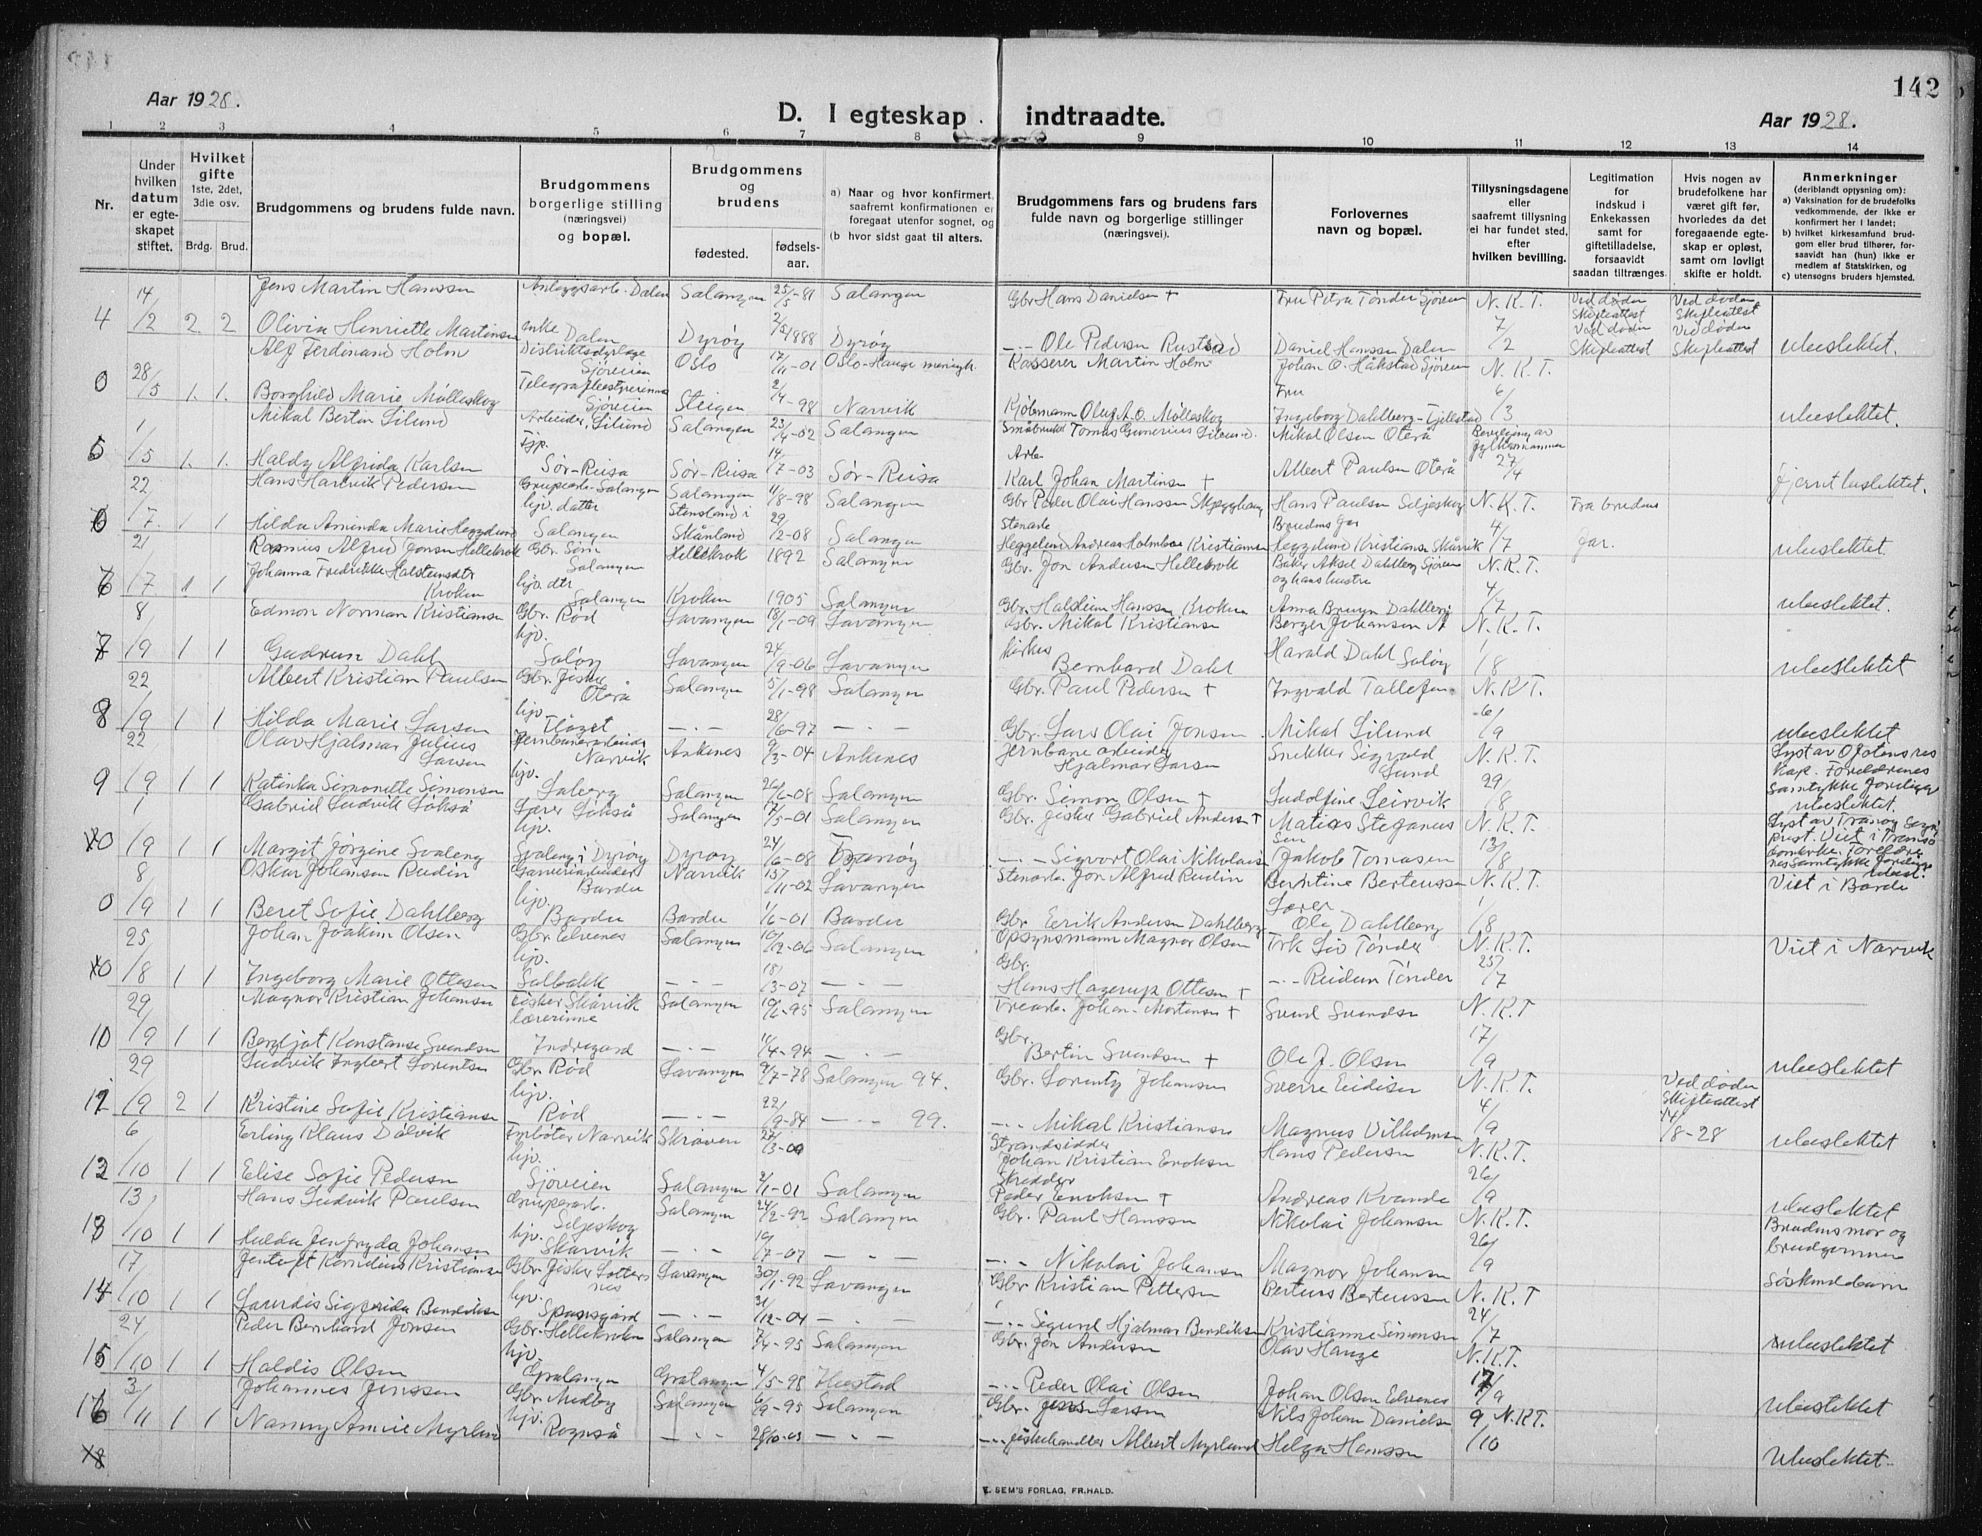 142
Aar 1928.
D. I egteskap indtraadte.
Aar 1928.
1 2 3 4 5 6 7 8 9 10 11 12 13 14
Nr.
Under hvilken datum er egteskapet stiftet.
Hvilket gifte 1ste, 2det, 3die osv. Brdg. Brud.
Brudgommens og brudens fulde navn.
Brudgommens borgerlige stilling (næringsvei) og bopæl.
Brudgommens og brudens fødested. fødselsaar.
a) Naar og hvor konfirmert, saafremt konfirmationen er foregaat utenfor sognet, og (b hvor sidst gaat til alters.
Brudgommens fars og brudens fars fulde navn og borgerlige stillinger (næringsvei).
Forlovernes navn og bopæl.
Tillysningsdagene eller saafremt tillysning ei har fundet sted, efter hvilken bevilling.
Legitimation for indskud i Enkekassen samt for giftetilladelse, forsaavidt saadan tiltrænges.
Hvis nogen av brudefolkene har været gift før, hvorledes da det foregaaende egteskap er opløst, samt om lovligt skifte er holdt.
Anmerkninger (deriblandt oplysning om): a) Vaksination for de brudefolks vedkommende, der ikke er konfirmert her i landet; b) hvilket kirkesamfund brudgom eller brud tilhører, forsaavidt han (hun) ikke er medlem af Statskirken, og c) utensogns bruders hjemsted.
14 Jens Martin Hanssen Anleggsarb. Dalen Salangen 25/5-81 Salangen Gbr Hans Danielsen + Fru Petra Tønder Sjøveien N.K.T. Ved døden Skifteattest Ved døden Skifteattest
4 /2 2 2 Olivia Henriette Martinsen enke Dalen Dyrøy 2/5 1888 Dyrøy —·— Ole Pedersen Rustad Daniel Hanssen Dalen 7/2 Ved døden Skifteattest Ved døden Skifteattest ubeslektet.
28 Alf Ferdinand Holm Distriktsdyrlæge Sjøveien Oslo 17/11-01 Oslo-Hauge menigh. Kasserer Martin Holm Johan O. Håkstad Sjøveien N.K.T.
0 /5 1. 1. Borghild Marie Mølleskog Telegrafbestyrerinne Sjøveien Steigen 2/4-98 Narvik Kjøbmann Oluf A.O. Mølleskog Fru Ingeborg Dahlberg-Fjellstad 6/3 ubeslektet.
1 Mikal Bertin Lilund Arbeider, Lilund Salangen 23/4-02 Salangen Småbruker Tomas Gunerius Lilund. Mikal Olsen Oterå Bevilgning av fylkesmannen
5 /5 1. 1. Haldy Alfrida Karlsen Sør-Reisa Sør-Reisa 14/7-03 Sør-Reisa Arb. Karl Johan Martinsen + Albert Paulsen Oterå 27/4 fjernt beslektet.
22 Hans Hartvik Pedersen Salangen Salangen 11/8-98 Salangen Gbr Peder Olai Hanssen Hans Paulsen Seljeskog N.K.T. Fra brudens
6 /7 1 1 Hilda Aminda Marie Heggelund hjv. datter Salangen Stensland i Skånland 29/12-08 Salangen Stenarb. Heggelund Andreas Holmboe Kristiansen Brudens far Heggelund Kristiansen Skårvik 4/7 far. ubeslektet.
21 Rasmus Alfred Jonsen Hellekrok Gbr. Søn Salangen Hellekrok 1892 Salangen Gbr. Jon Andersen Hellekrok Baker Aksel Dahlberg Sjøveien og hans hustru N.K.T.
6 /7 1 1 Johanna Fredrikke Halsteinsdtr Kroken hjv. dtr Salangen Kroken 1905 Salangen Gbr. Halstein Hanssen Kroken Anna Bruun Dahlberg 4/7 ubeslektet.
8 Edmon Norman Kristiansen Gbr. Rød Lavangen 18/1-09 Lavangen Gbr. Mikal Kristiansen Berger Johansen N.K.T.
7 /9 1 1 Gudrun Dahl hjv. Saløy Lavangen 24/9-06 Lavangen Bernhard Dahl Harald Dahl Saløy 1/8 ubeslektet
22 Albert Kristian Paulsen Gbr. fisker Oterå Salangen 5/1-98 Salangen Gbr. Paul Pedersen + Ingvald Tollefsen N.K.T.
8 /9 1 1 Hilda Marie Larsen hjv. —·— 28/6-97 —·— Gbr. Lars Olai Jonsen Mikal Lilund 6/9 ubeslektet
22 Olav Hjalmar Julius Larsen Jernbanearbeider Narvik Ankenes 9/3-04 Ankenes Jernbane arbeider Hjalmar Larsen Snekker Sigvald Lund N.K.T. Lyst av Ofotens res kap. Foreldrenes samtykke foreligger
9 /9 1 1 Katinka Simonette Simonsen hjv. Soleng Salangen 26/6-08 Salangen Gbr. Simon Olsen + Ludolfine Leirvik 29/8 ubeslektet.
1 Gabriel Ludvik Løkså Lærer Løkså Salangen 12/5-01 Salangen Gbr. fisker Gabriel Andersen + Matias Stefanussen N.K.T. Lyst av Tranøy Sogneprest. Viet i Tromsø domkirke. Foreldrenes samtykke foreligger
10 /9 1 1 Margit Jørgine Svaleng hjv. Svaleng i Dyrøy Dyrøy 24/6-08 Tranøy —·— Sigvort Olai Nikolaisen Jakob Tomasen 13/8 ubesl.
8 Oskar Johansen Rudin Garveriarbeider Bardu Narvik 15/11-02 Lavangen Stenarb. Jon Alfred Rudin Berntine Berteussen N.K.T. Viet i Bardu
0 /9 1 1 Beret Sofie Dahlberg hjv. Bardu Bardu 1/6-01 Bardu Gbr. Eerik Andersen Dahlberg Lærer Ole Dahlberg 1/8
25 Johan Joakim Olsen Gbr. Elvenes Salangen 10/12-06 Salangen Opsynsmann Magnor Olsen Frk Liv Tønder N.K.T. Viet i Narvik
10 /8 1 1 Ingeborg Marie Ottesen hjv. Solbakk —·— 18/3-07 —·— Gbr. Hans Hagerup Ottesen + —·— Reidun Tønder 25/7
29 Magnor Kristian Johansen Fisker Skårvik Salangen 19/6-95 Salangen Trearb. Johan Mortensen + Svend Svendsen N.K.T
10 /9 1 1 Bergljot Konstanse Svendsen lærerinne Indregard —·— 11/4-94 —·— Gbr. Bertin Svendsen + Ole J. Olsen 17/9 ubeslektet
29 Ludvik Ingbert Lorentsen Gbr. Rød Lavangen 9/7-78 Salangen 94. Gbr. Lorentz Johansen Sverre Eidisen N.K.T. Ved døden Skifteattest
12 /9 2 1 Kristine Sofie Kristiansen hjv. Rød —·— 22/9-84 —·— 99. —·— Mikal Kristiansen Magnus Vilhelmsen 4/9 14/8-28 ubeslektet
6 Erling Klaus Dalvik Fyrbøter Narvik Skroven 27/3-00 Strandsidder Johan Kristian Enoksen Hans Pedersen N.K.T.
12 /10 1 1 Elise Sofie Pedersen hjv. Sjøveien Salangen 2/1-01 Salangen Skredder Peder Enoksen + Andreas Kvande 26/9 ubeslektet
13 Hans Ludvik Paulsen Grubearb. Seljeskog Salangen 24/2-92 Salangen Gbr. Paul Hanssen Nikolai Johansen N.K.T. Brudens mor og
13 /10 1 1 Hulda Jenfryda Johansen hjv. Skårvik —·— 19/7-07 —·— —·— Nikolai Johansen Magnor Johansen 26/9 brudgommen
17 Jentoft Kornelius Kristiansen Gbr. fisker Lavangen 30/1-92 Lavangen Gbr. Kristian Pettersen Berteus Berteussen N.K.T søskendebarn
14 /10 1 1 Laurdis Sigfrida Bendiksen hjv. Spansgård —·— 31/12-04 —·— —·— Sigurd Hjalmar Bendiksen Kristianne Simonsen 24/7
24 Peder Bernhard Jonsen Gbr. Hellekroken Salangen 7/4-95 Salangen Gbr. Jon Andersen Olav Hauge N.K.T. ubeslektet
15 /10 1 1 Haldis Olsen hjv. Gratangen Gratangen 4/5-98 —·— Peder Olai Olsen Johan Olsen Elvenes 17/9
3 Johannes Jenssen Gbr. Medby Salangen 6/9-95 Salangen Gbr. Jens Larsen Nils Johan Danielsen N.K.T. ubeslektet
16 /11 1 1 Nanny Amvie Myrlund hjv. Rognså —·— 28/10-03 —·— —·— fiskehandler Albert Myrlund Helga Hanssen 9/10 ubeslektet
18
E. SEM'S FORLAG, FR.HALD.